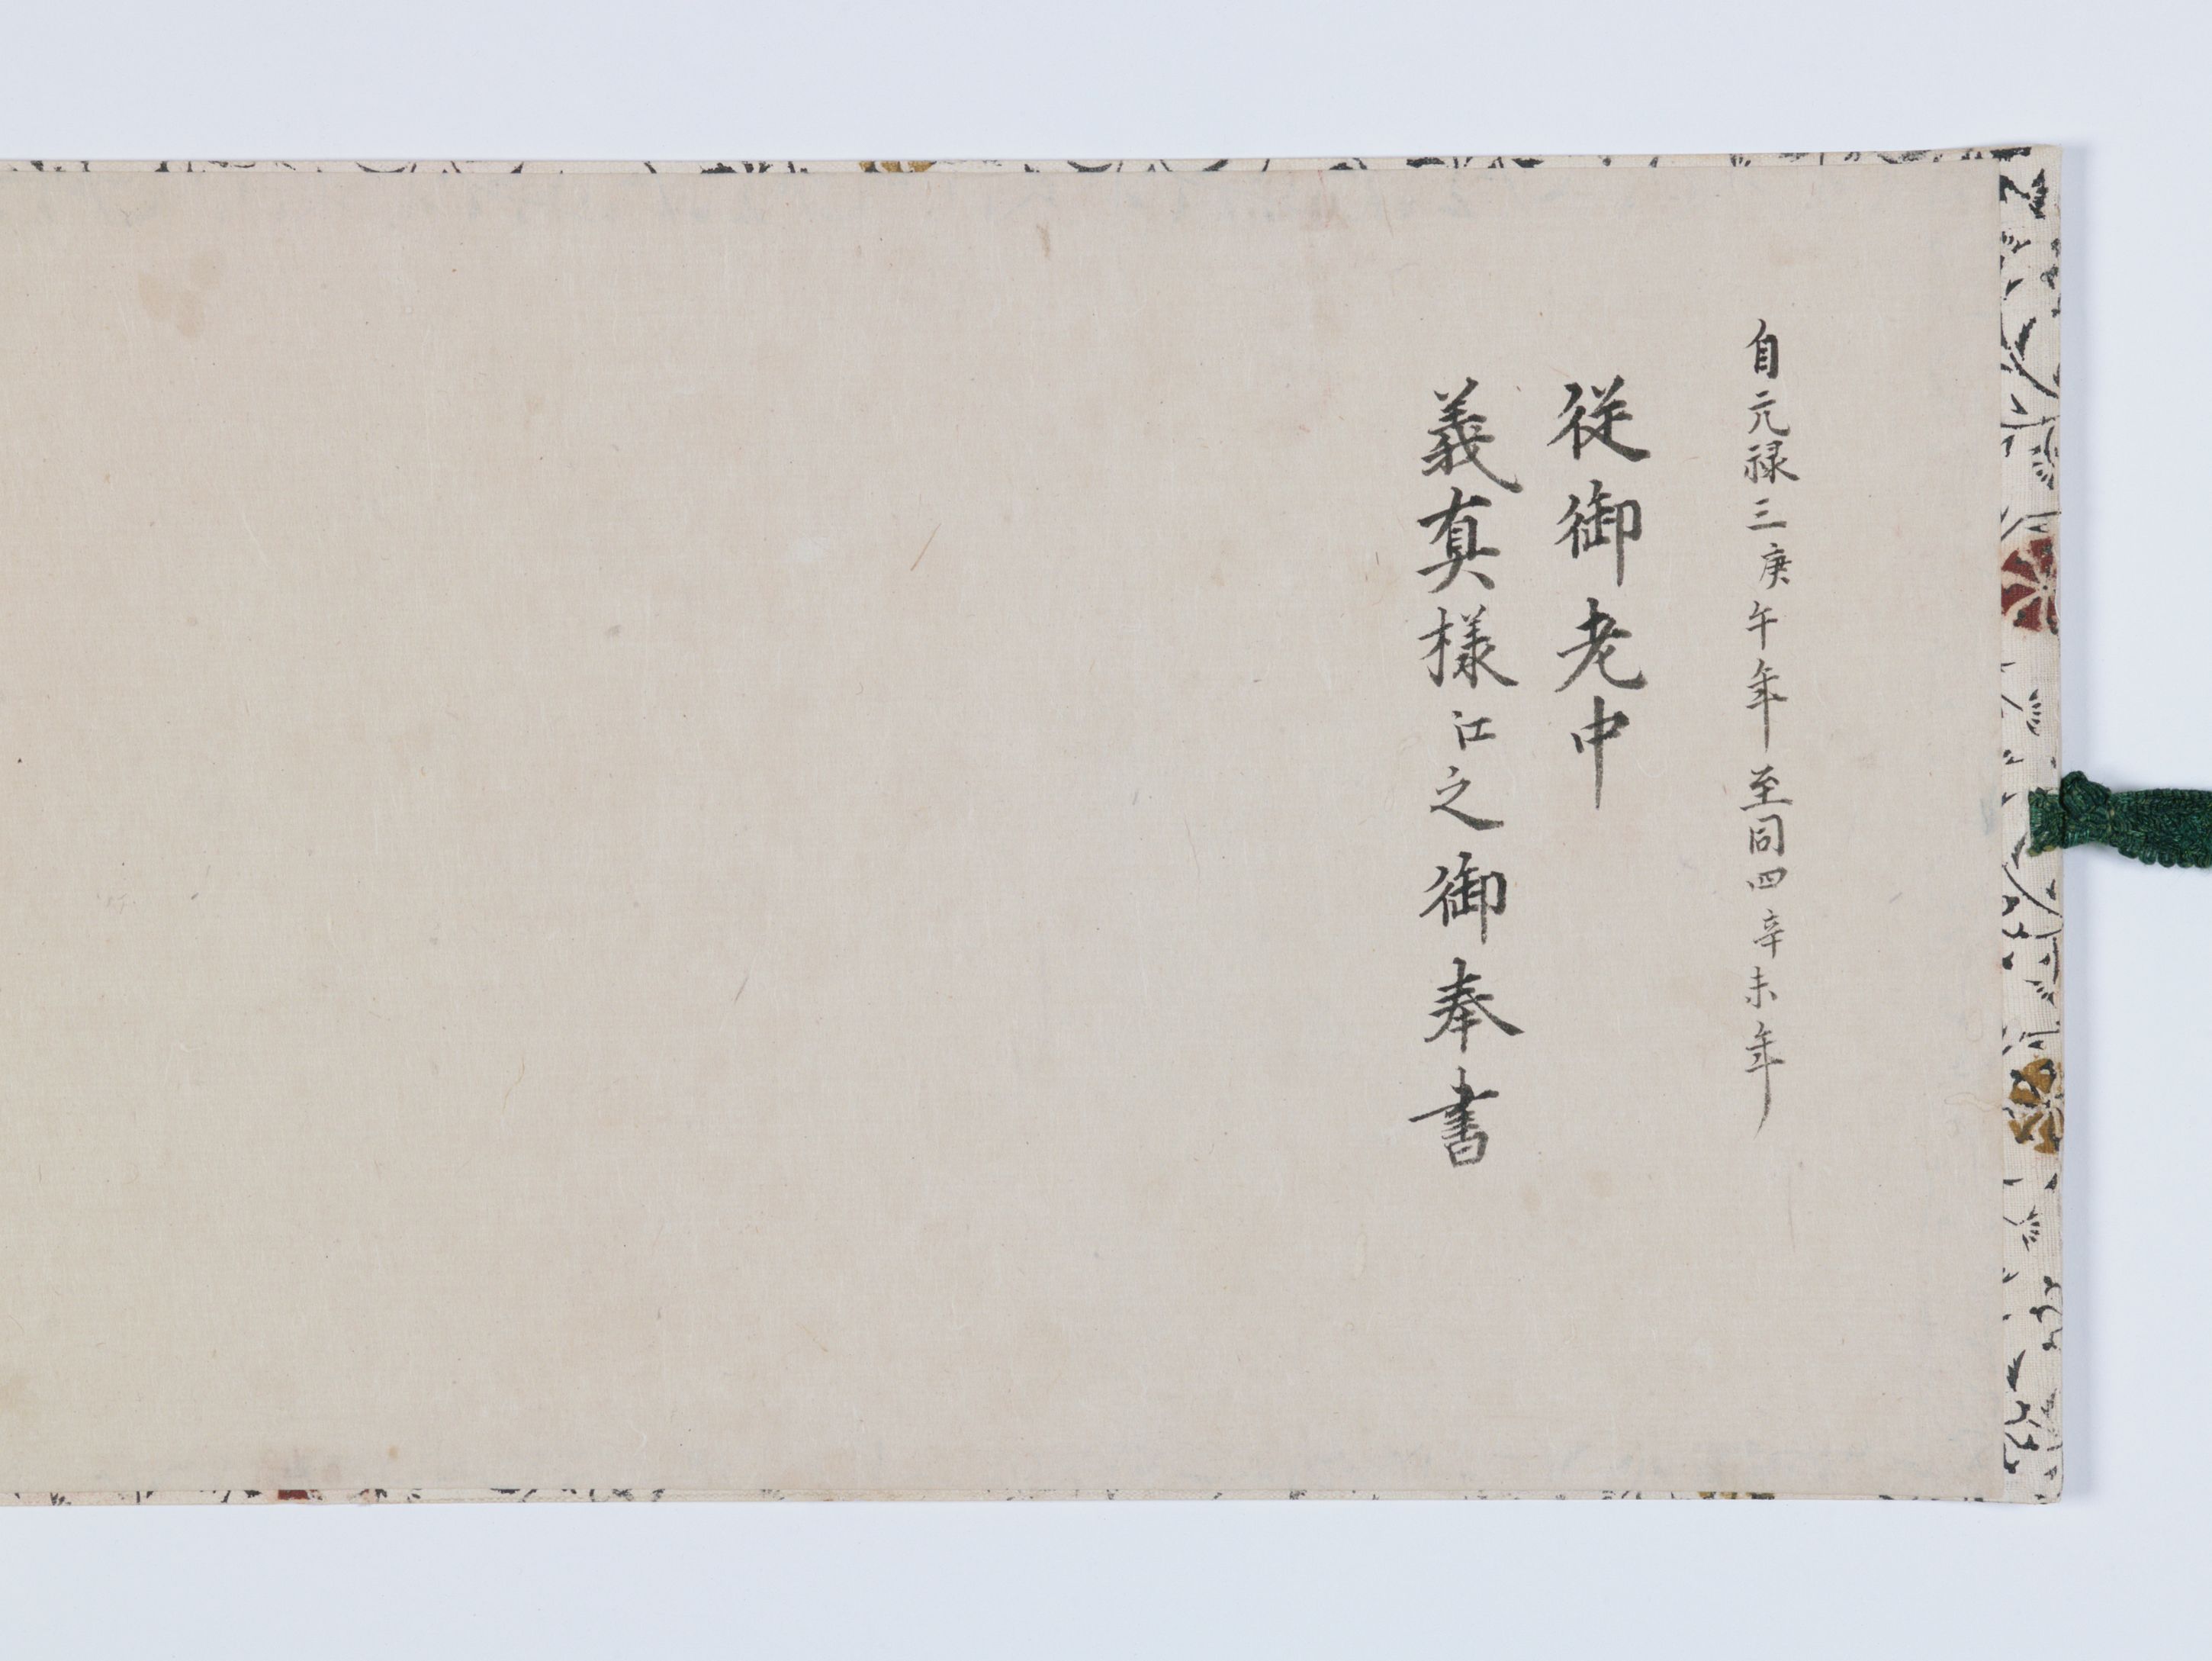 自元禄三庚午年至同四辛未年
従御老中
義真様江之御奉書